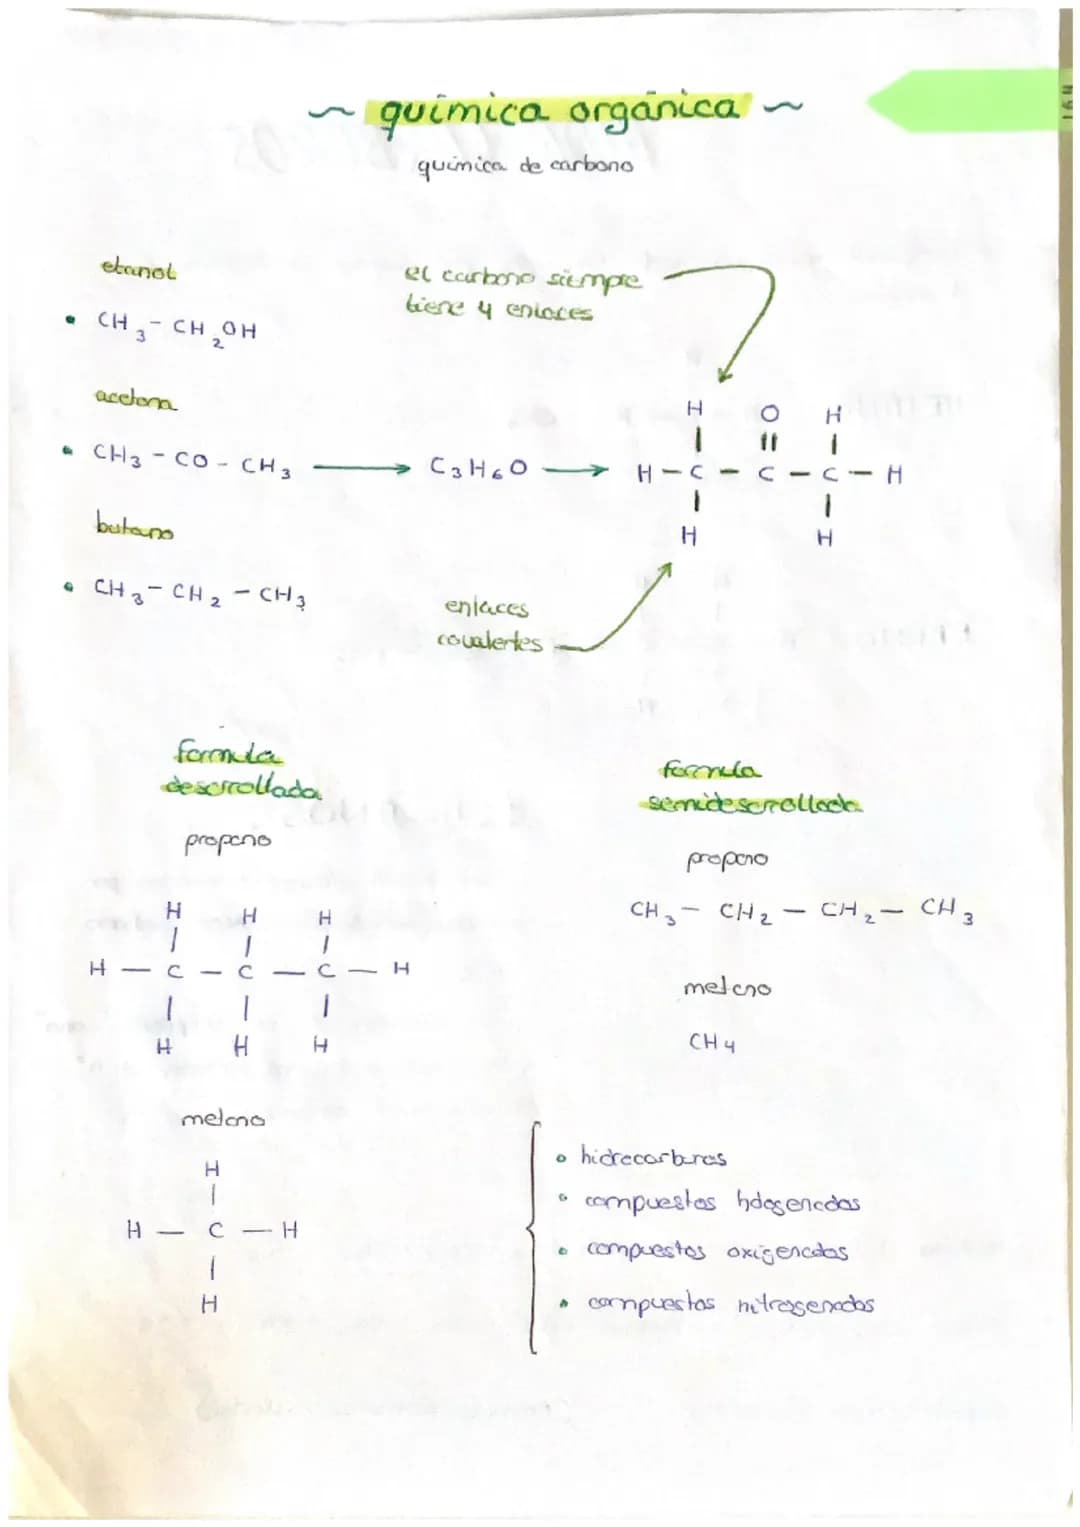 ~ química orgánica ~
química de carbono
etanol
• CH3 - CH2OH
el carbono siempre
tiene 4 enlaces
acetona
• CH3 - CO - CH3 → C3H6O →
H O H
| || |
H - C - C - C - H
| |
H H
butano
• CH3 - CH2 - CH3
enlaces
covalentes
formula
desarrollada
propano
H H H
| | |
H — C — C — C — H
| | |
H H H
metano
H
|
H — C — H
|
H
formula
semidesarrollada
propano
CH3 — CH2 — CH2 — CH3
metano
CH4
• hidrocarburos
• compuestos halogenados
• compuestos oxigenados
• compuestos nitrogenados